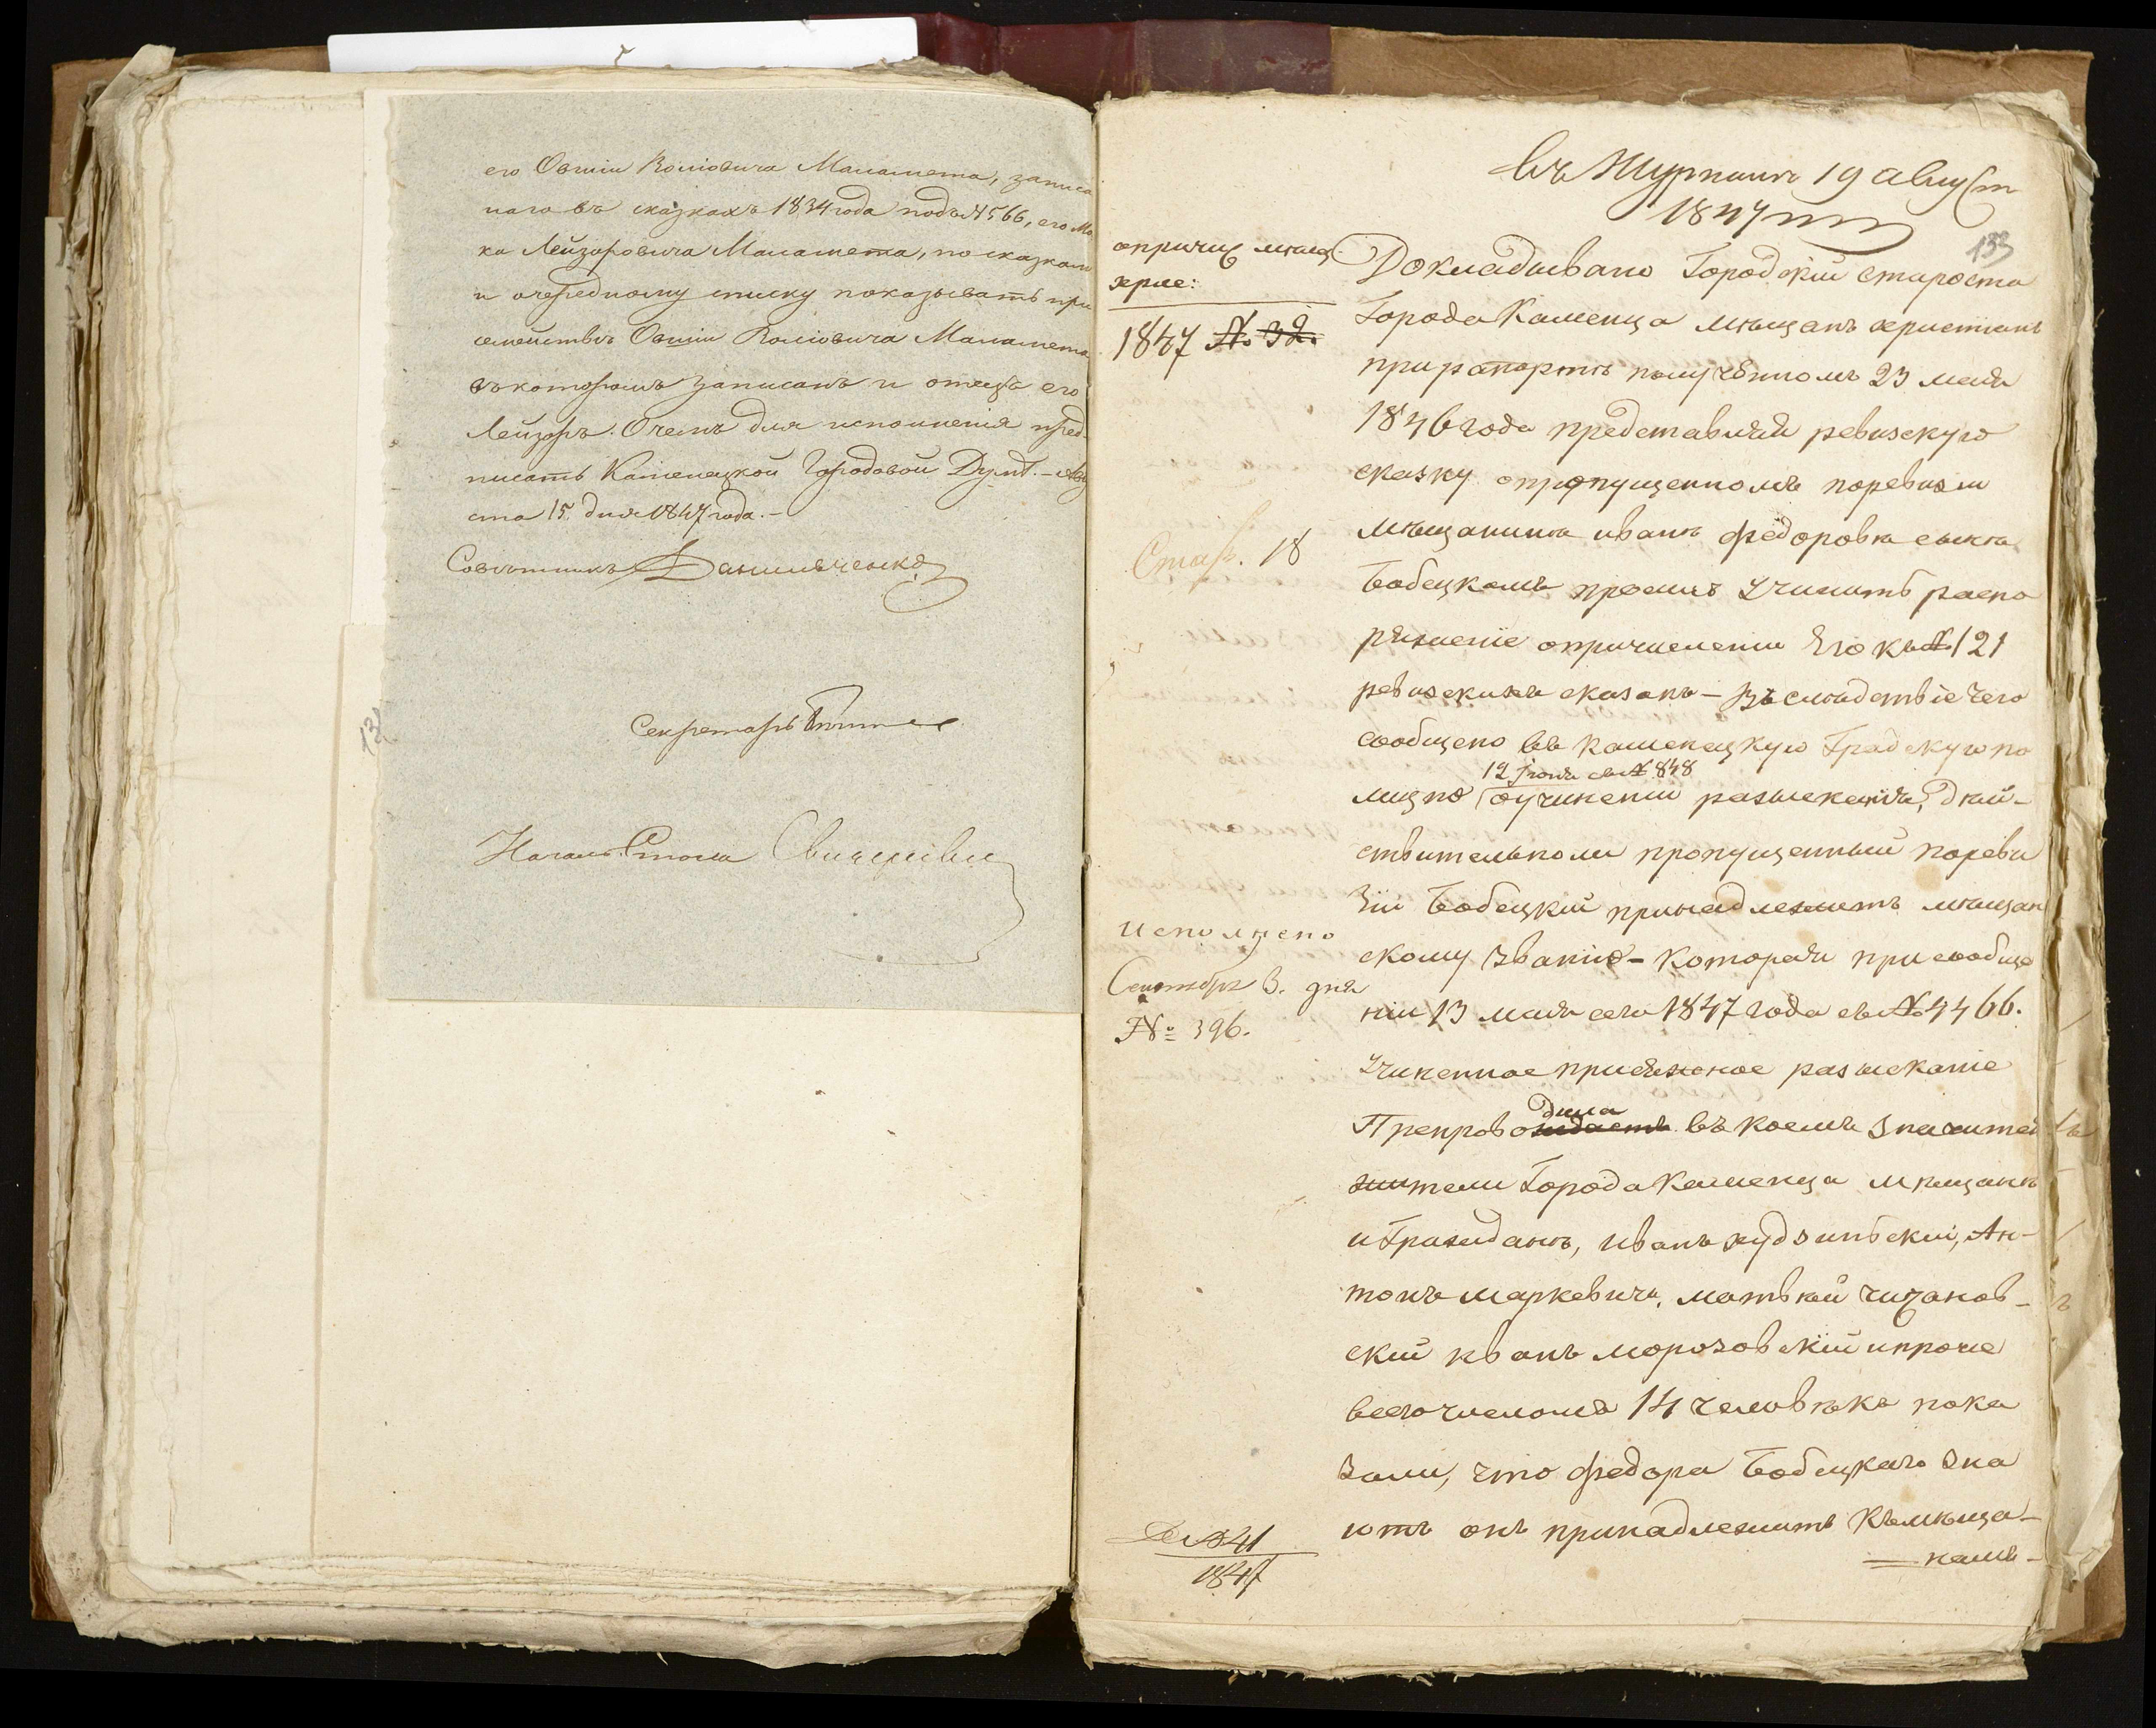 его Овшіи Волiовича Маламета, записа
наго въ сказкахъ 1834 года подъ № 566, его Мо
ка Лейзоровича Маламета, по сказкамъ
и очередному списку показывать при
семействѣ Овшіи Волiовича Маламета
въ которомъ записанъ и отецъ его
Лейзоръ. О чемъ для исполненія пред-
писать Каменецкой Городовой Думѣ. – Авгу
ста 15 дня 1847 года. –
Совѣтникъ Данильченко
Секретарь
Началь. Стола
въ Журналъ 19 августа
1847
133
о причис мѣщ.
хрис:
1847 № 32.
Докладывано Городскій староста
Города Каменца мѣщанъ христіанъ
при рапортѣ полученномъ 23 мая
1846 года представляя ревизскую
сказку о пропущенномъ по ревизіи
мѣщанинѣ иванѣ Федоровѣ сынѣ
Стар. 18
Бобецкомъ проситъ учинить распо
ряженіе о причисленіи Его къ № 121
ревизскихъ сказокъ – Въ слѣдствіе чего
сообщено въ Каменецкую Градскую по
12 Іюня съ № 848
лицію о учиненіи разысканія, дѣй-
ствительно ли пропущенный по реви
зіи Бобецкій принадлежитъ мѣщан
скому званію – Которая при сообще
ніи 13 мая сего 1847 года съ № 4466.
Исполнено
Сентября 3. дня
№ 396.
учиненное присяжное разысканіе
дила
Препровождаетъ въ коемъ значитъ
жители Города Каменца мѣщане
и Граждане, Иванъ худзинскій, Ан-
тонъ маркевичъ, матвѣй
скій иванъ морозовскій и проче
всего числомъ 14 человѣкъ пока
зали, что Федора Бобецкаго зна
ютъ онъ принадлежитъ къ мѣща-
намъ –
Д № 41
1847